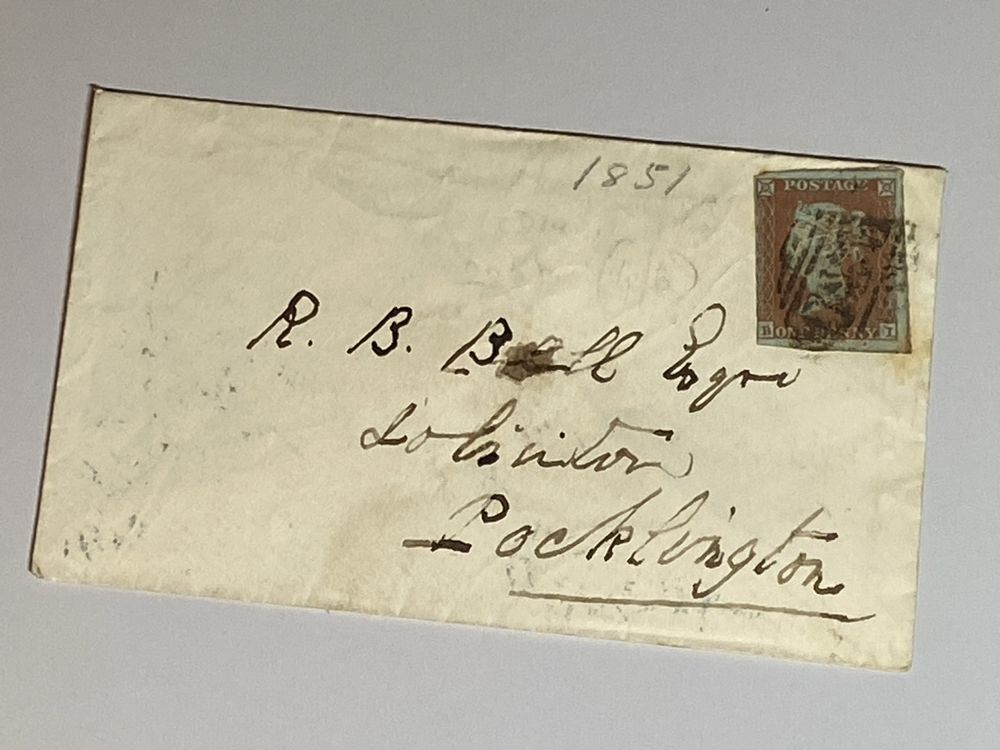 1851
POSTAGE
B ONE PENNY I
R. B. Bell Esqre
Solicitor
Pocklington